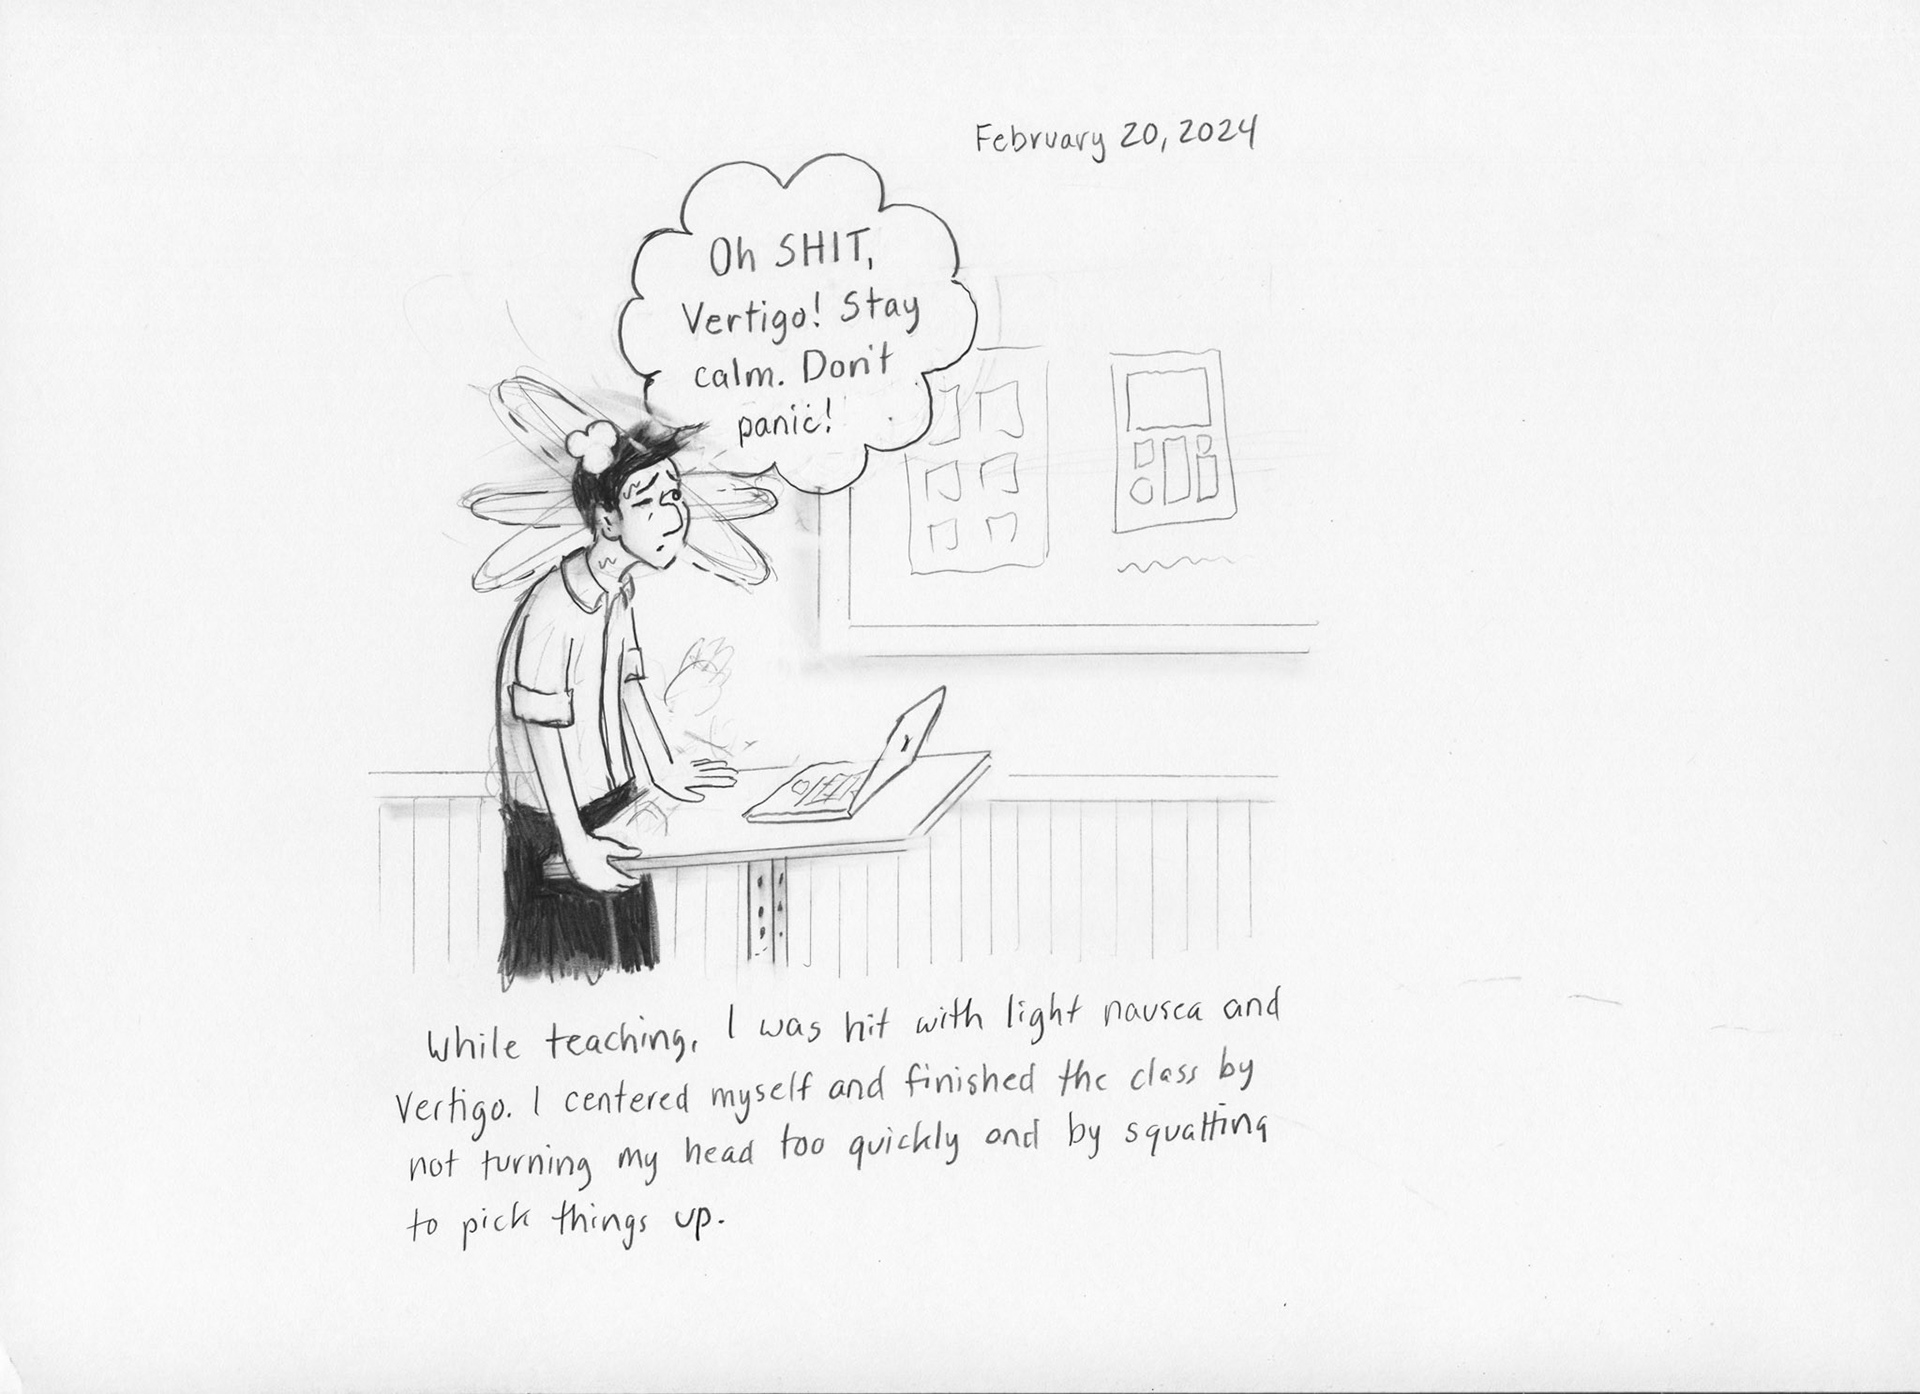 February 20, 2024
Oh SHIT,
Vertigo! Stay
calm. Don't
panic!
While teaching, I was hit with light nausea and
Vertigo. I centered myself and finished the class by
not turning my head too quickly and by squatting
to pick things up.